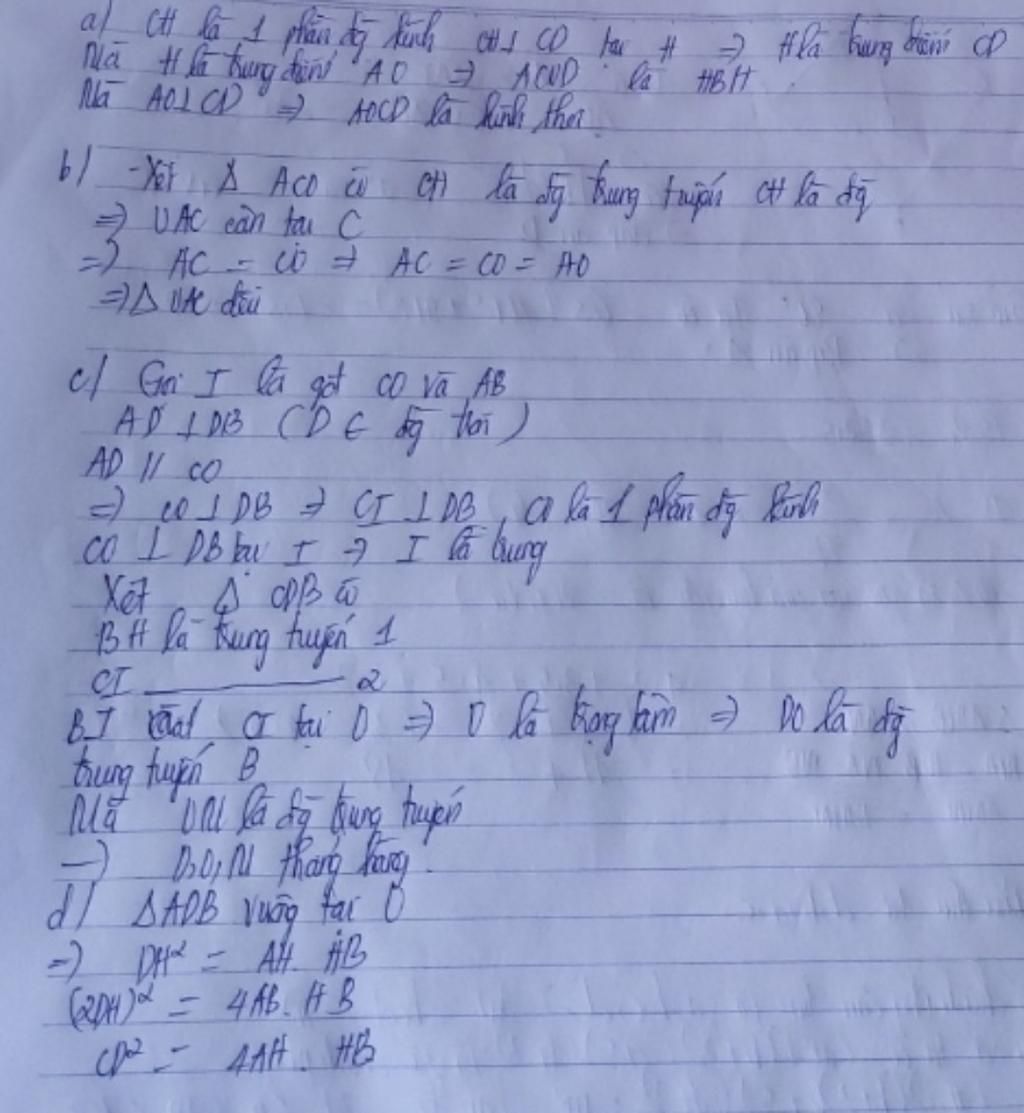 a) CH là 1 phần đg kính OH ⊥ CD tại H => H là trung điểm CD
Mà H là trung điểm AO => ACOD là HBH
Mà AO ⊥ CD => AOCD là hình thoi
b) - Xét Δ ACO có CH là đg trung tuyến CH là đg
=> OAC cân tại C
=> AC = CO => AC = CO = AO
=> Δ OAC đều
c) Gọi I là gđ CO và AB
AD ⊥ DB (D ∈ đg tròn)
AD // CO
=> CO ⊥ DB => CI ⊥ DB, CI là 1 phần đg kính
CO ⊥ DB tại I => I là trung
Xét Δ CDB có
BH là trung tuyến 1
CI ——— 2
BI cắt CI tại O => O là trọng tâm => DO là đg
trung tuyến B
Mà DM là đg trung tuyến
=> D,O,M thẳng hàng.
d) ΔADB vuông tại D
=> DH² = AH. HB
(2DH)² = 4AB. HB
CD² = 4AH. HB